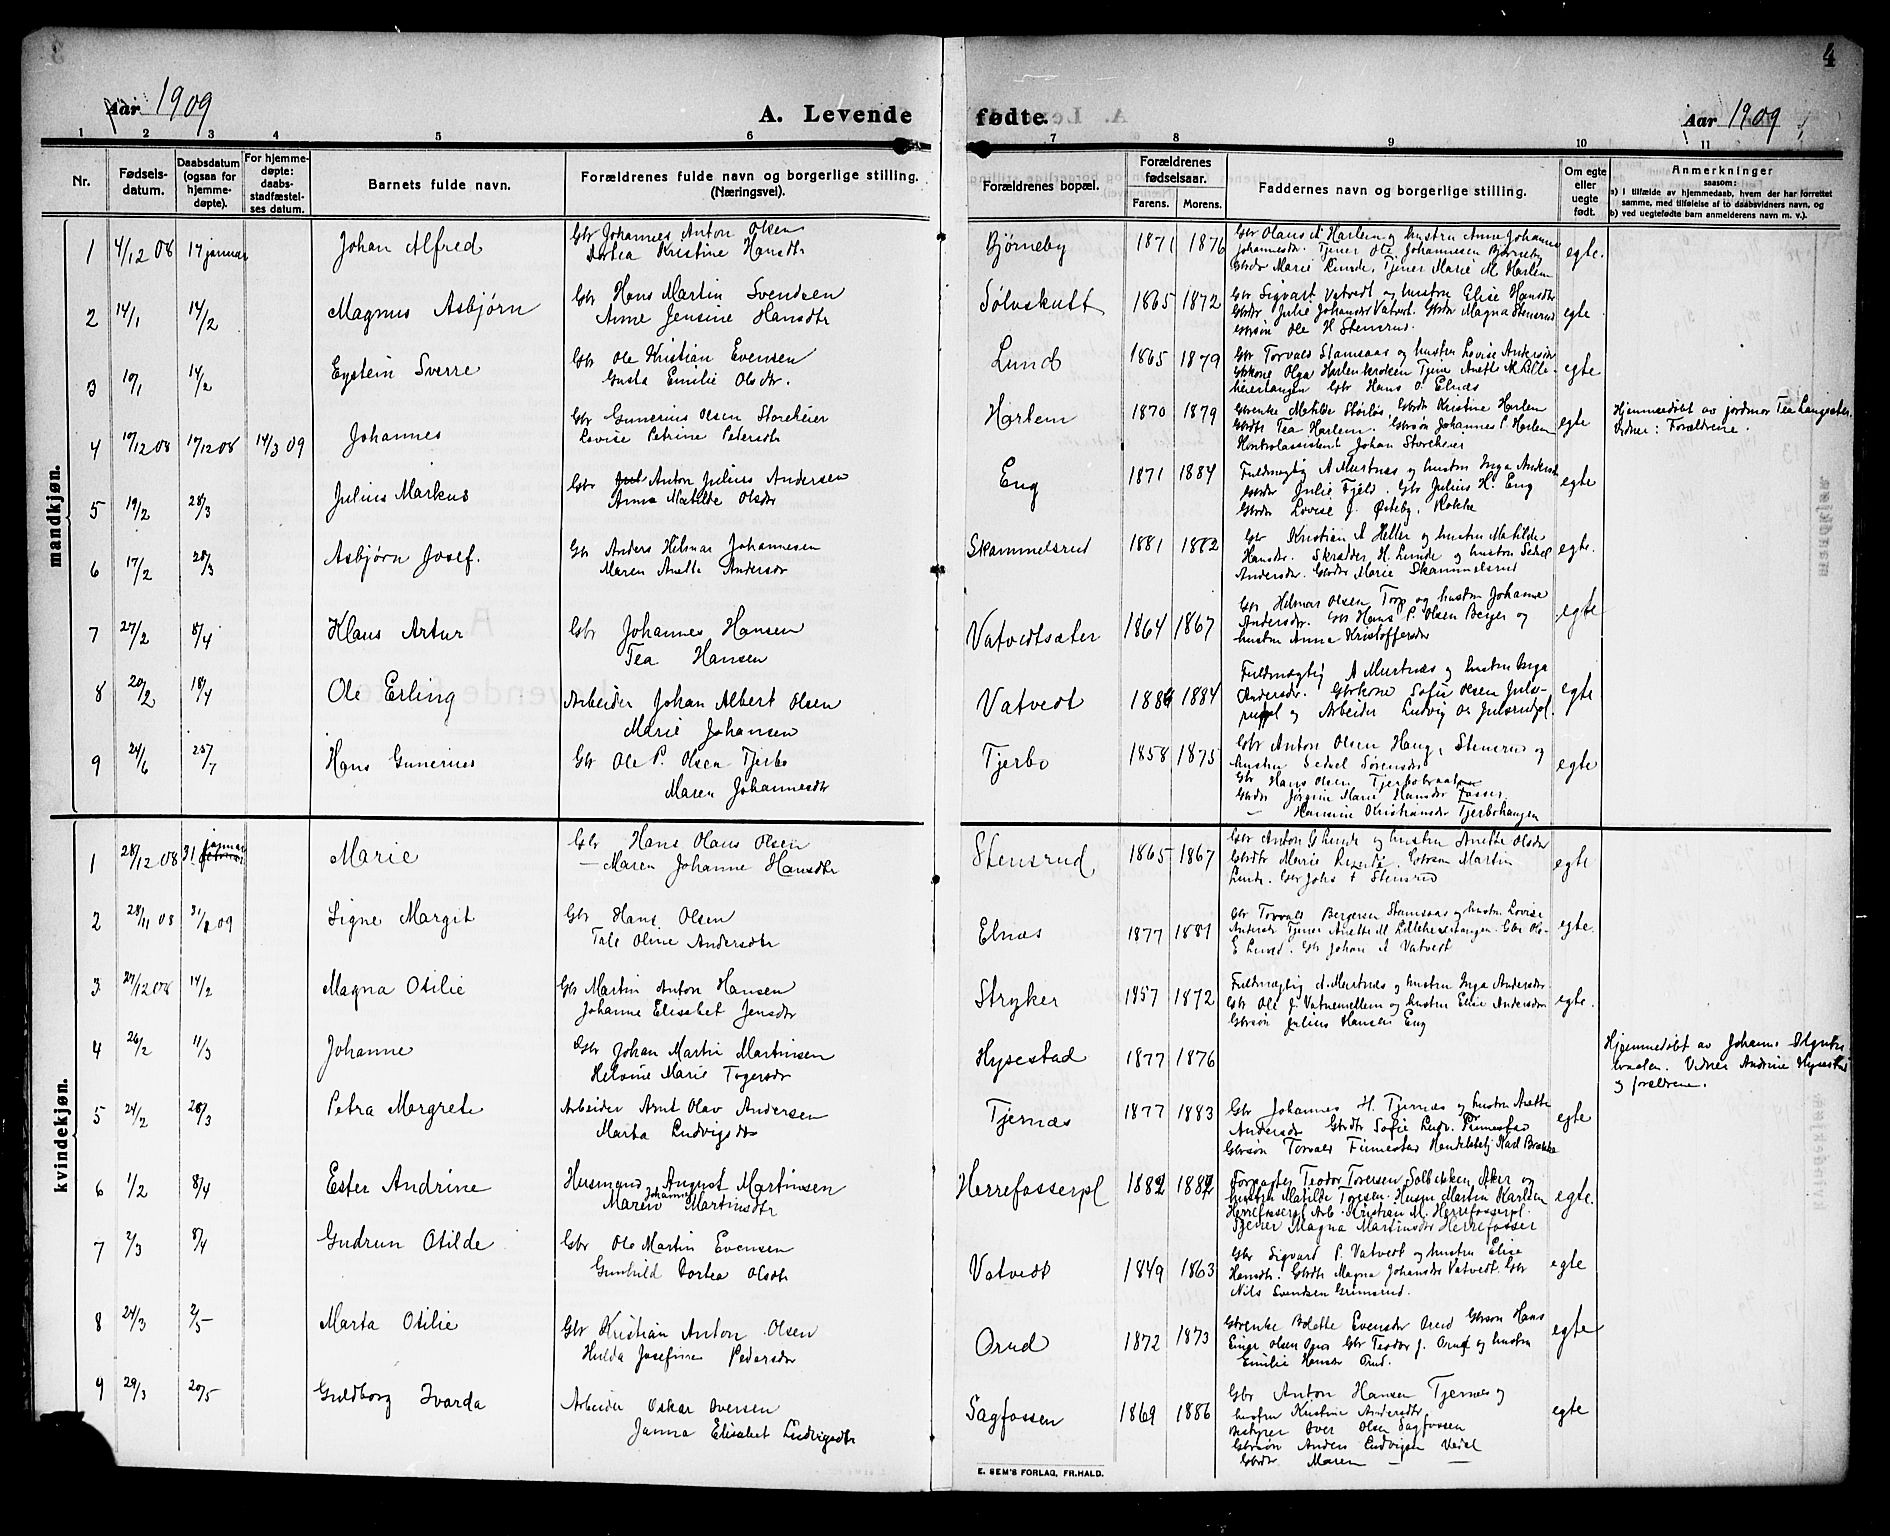 4
Aar 1909
A. Levende fødte.
Aar 1909
1 2 3 4 5 6 7 8 9 10 11
Nr.
Fødsels-
datum.
Daabsdatum
(ogsaa for
hjemme-
døpte).
For hjemme-
døpte:
daabs-
stadfæstel-
ses datum.
Barnets fulde navn.
Forældrenes fulde navn og borgerlige stilling.
(Næringsvei).
Forældrenes bopæl.
Forældrenes
fødselsaar.
Farens. Morens.
Faddernes navn og borgerlige stilling.
Om egte
eller
uegte
født.
Anmerkninger
saasom:
a) i tilfælde av hjemmedaab, hvem der har forrettet
samme, med tilføielse af to daabsvidners navn, og
b) ved uegtefødte barn anmelderens navn m. v.).
mandkjøn.
1 4/12 08 17 januar Johan Alfred
Gbr Johannes Anton Olsen
Dortea Kristine Hansdtr
Bjørneby 1871 1876
Gbr Olaus A Harlem og hustru Anne Johanne
Johannesdr. Tjener Ole Johannesen Bjørneby
Gbrdr Marie Lunde, Tjener Marie M. Harlem
egte.
2 14/1 14/2 Magnus Asbjørn
Gbr Hans Martin Svendsen
Anne Jensine Hansdtr
Sølvskutt 1865 1872
Gbr Sigvart Vatvedt og hustru Elise Hansdtr
Gbrdr Julie Johansdr Vatvedt. Gbrdr Magna Stensrud
Gbrsøn Ole H Stensrud.
egte
3 10/1 14/2 Eystein Sverre
Gbr Ole Kristian Evensen
Gusta Emilie Olsdtr.
Lund 1865 1879
Gbr Torvald Stamsaas og hustru Lovise Andersdr
Gbrkone Olga Harlemkroken Tjener Anette M Lille-
heiestangen Gbr Hans O. Elnæs
egte
4 19/12 08 17/12 08 14/3 09 Johannes
Gbr Gunerius Olsen Storeheier
Lovise Petrine Pedersdtr
Harlem 1870 1879
Gbrenke Matilde Størløs, Gbrdr Kristine Harlem
Gbrdtr Tea Harlem. Gbrsøn Johannes P. Harlem
Kontrolassistent Johan Storeheier
egte
Hjemmedøbt av jordmor Tea Langsæter.
Vidner: Forældrene.
5 19/2 28/3 Julius Markus
Gbr Anton Julius Andersen
Anna Matilde Olsdr
Eng 1871 1884
Fuldmægtig A Murtnæs og hustru Inga Andersdr
Gbrdr Julie Fjeld. Gbr Julius H. Eng
Gbrdr Lovise J. Østeby, Rokke
egte
6 17/2 28/3 Asbjørn Josef.
Gbr Anders Hilmar Johannesen
Maren Anette Andersdr
Skammelsrud 1881 1882
Gbr Kristian A Heller og hustru Matilde
Hansdtr. Skrædder H. Lunde og hustru Sedsel
Andersdr. Gbrdtr Marie Skammelsrud
egte.
7 27/2 8/4 Klaus Artur
Gbr Johannes Hansen
Tea Hansen
Vatvedtsæter 1864 1867
Gbr Hilmar Olsen Torp og hustru Johanne
Andersdr. Gbr Hans P. Olsen Berger og
hustru Anna Kristoffersdr
egte
8 20/2 18/4 Ole Erling
Arbeider Johan Albert Olsen
Marie Johansen
Vatvedt 1884 1884
Fuldmægtig A Murtnæs og hustru Inga
Andersdr. Gbrkone Sofie Olsen Juls-
rudpl og Arbeider Ludvig Ols Julsrudpl.
egte
9 24/6 25/7 Hans Gunerius
Gbr Ole P. Olsen Tjerbo
Maren Johannesdtr
Tjerbo 1858 1875
Gbr Anton Olsen Haug, Stensrud og
hustru Sedsel Sørensdr
Gbr Hans Olsen Tjerbobraaten
Gbrdr Jørgine Marie Hansdr Fosser
— Hansine Kristiansdr Tjerbohaugen
egte
kvindekjøn.
1 28/12 08 31 januar Marie
Gbr Hans Olaus Olsen
— Maren Johanne Hansdtr
Stensrud 1865 1867
Gbr Anton G Lunde og hustru Anette Olsdtr
Gbrdtr Marie Lunde. Gbrsøn Martin
Lunde. Gbr Johs F Stensrud
egte
2 28/11 08 31/1 09 Signe Margit
Gbr Hans Olsen
Tale Oline Andersdtr
Elnæs 1877 1881
Gbr Torvald Bergersen Stamsaas og hustru Lovise
Andersdr Tjener Anette M Lilleheiestangen. Gbr Ole
E Lund. Gbr Johan A Vatvedt
egte.
3 27/12 08 14/2 Magna Otilie
Gbr Martin Anton Hansen
Johanne Elisabet Jensdtr
Stryker 1857 1872
Fuldmægtig A. Murtnæs og hustru Inga Andersdr
Gbr Ole J. Vatnemellem og hustru Elise Andersdr
Gbrsøn Julius Hansen Eng
egte.
4 26/2 11/3 Johanne
Gbr Johan Martin Martinsen
Helvine Marie Tygersdr
Hysestad 1877 1876
Hjemmedøbt av Johanne
braaten. Vidner Andrine Hysestad
og forældrene.
5 24/2 28/3 Petra Margrete
Arbeider Arnt Olav Andersen
Marta Ludvigsdtr
Tjernæs 1877 1883
Gbr Johannes H. Tjernæs og hustru Anette
Andersdr Gbrdtr Sofie Ludv. Finnestad
Gbrsøn Torvald Finnestad Handelsbetj Karl Brække
egte
6 1/2 8/4 Ester Andrine
Husmand August Martinsen
Johanne
Maren Martinsdtr
Herrefosserpl 1882 1882
Forpagter Teodor Toresen Solbakken, Aker og
hustru Matilde Toresen. Husm Martin Karlsen
Herrefosserpl Arb. Kristian M. Herrefosserpl.
Tjener Magna Martinsdr Herrefosser
egte.
7 2/3 8/4 Gudrun Otilde
Gbr Ole Martin Evensen
Gunhild Dortea Olsdtr
Vatvedt 1849 1863
Gbr Sigvard P. Vatvedt og hustru Elise
Hansdtr. Gbrdtr Magna Johansdr Vatvedt. Gbr
Nils Svendsen Grimsrud.
egte
8 24/3 2/5 Marta Otilie
Gbr Kristian Anton Olsen
Hulda Josefine Pedersdr
Orud 1872 1873
Gbrenke Bolette Evensdr Orud Gbrsøn Hans
Einar Olsen Gbr Teodor J. Orud og hustru
Emilie Hansdr Orud.
egte
9 29/3 20/5 Guldborg Ivarda
Arbeider Oskar Oversen
Janna Elisabet Ludvigsdtr
Sagfossen 1869 1886
Gbr Anton Hansen Tjernæs og
hustru Kristine Andersdtr
Bestyrer Over Olsen Sagfossen
Gbrsøn Anders Ludvigsen Vedel
Gbrdr Maren — —
egte
E. SEM'S FORLAG, FR.HALD.